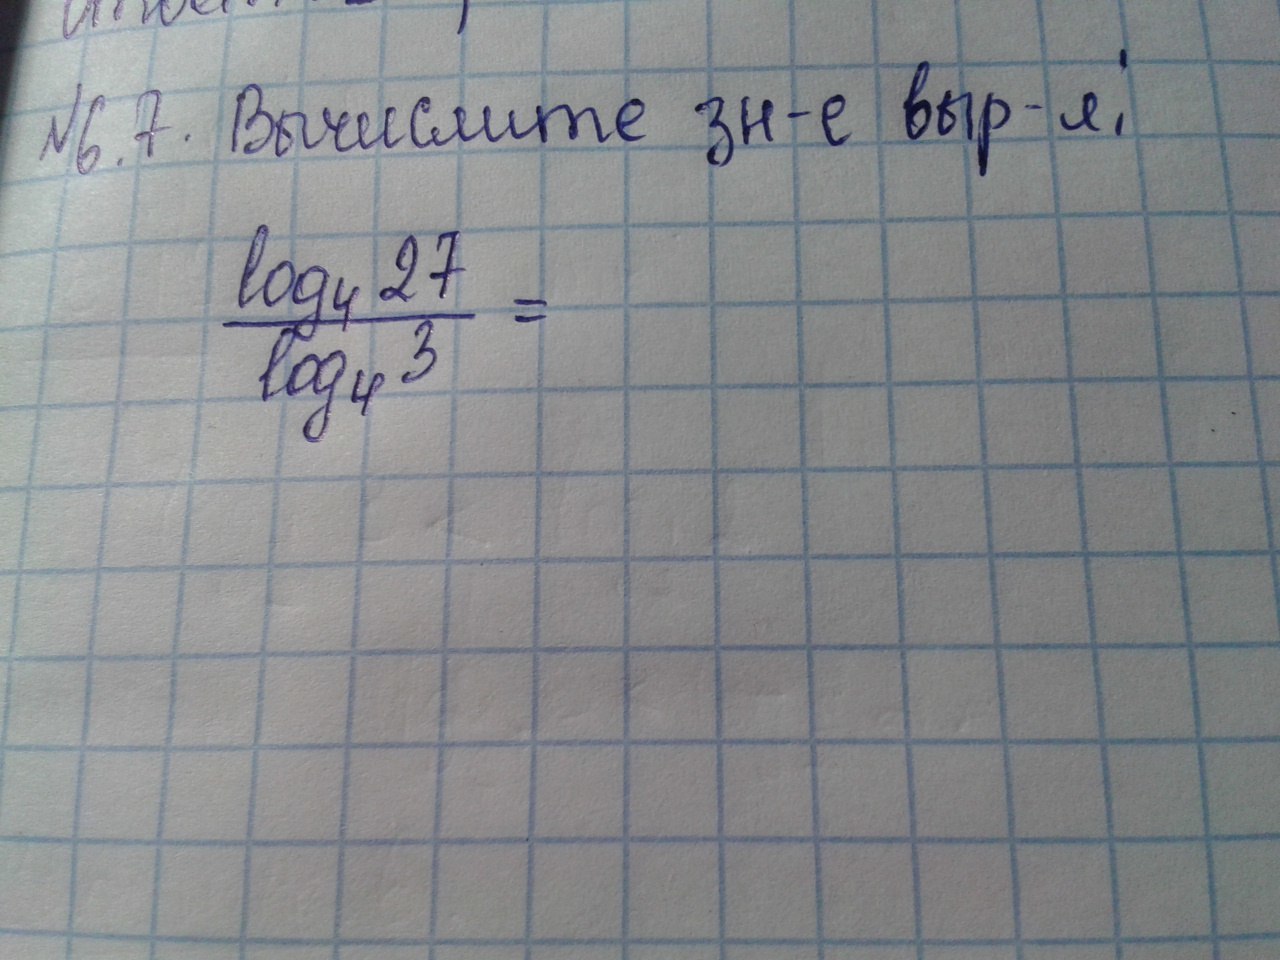 №6.7. Вычислите зн-е выр-я:
log₄ 27
log₄ 3
=